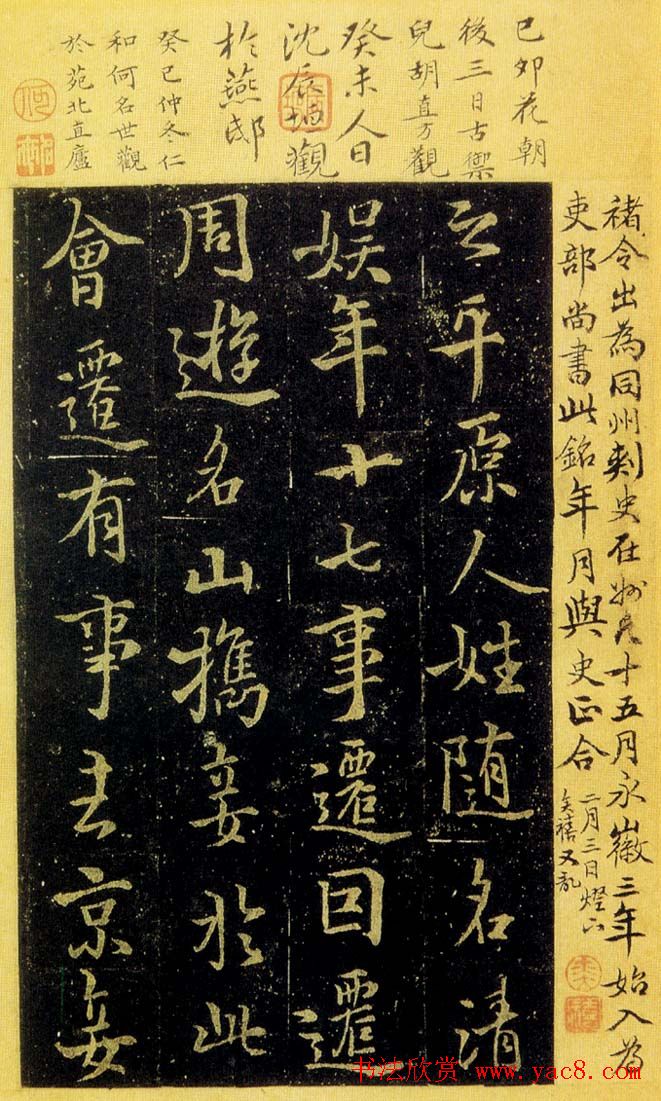 己卯花朝
後三日古禦
兒胡直方觀
癸未人日
沈辰垣觀
於燕邸
癸巳仲冬仁
和何名世觀
於苑北直廬
褚令出為同州刺史在州凡十五月永徽三年始入為
吏部尚書此銘年月與史正合
二月三日燈下
奕禧又記
之平原人姓隨名清
娛年十七事遷因遷
周遊名山攜妾於此
會遷有事去京妾
书法欣赏 www.yac8.com